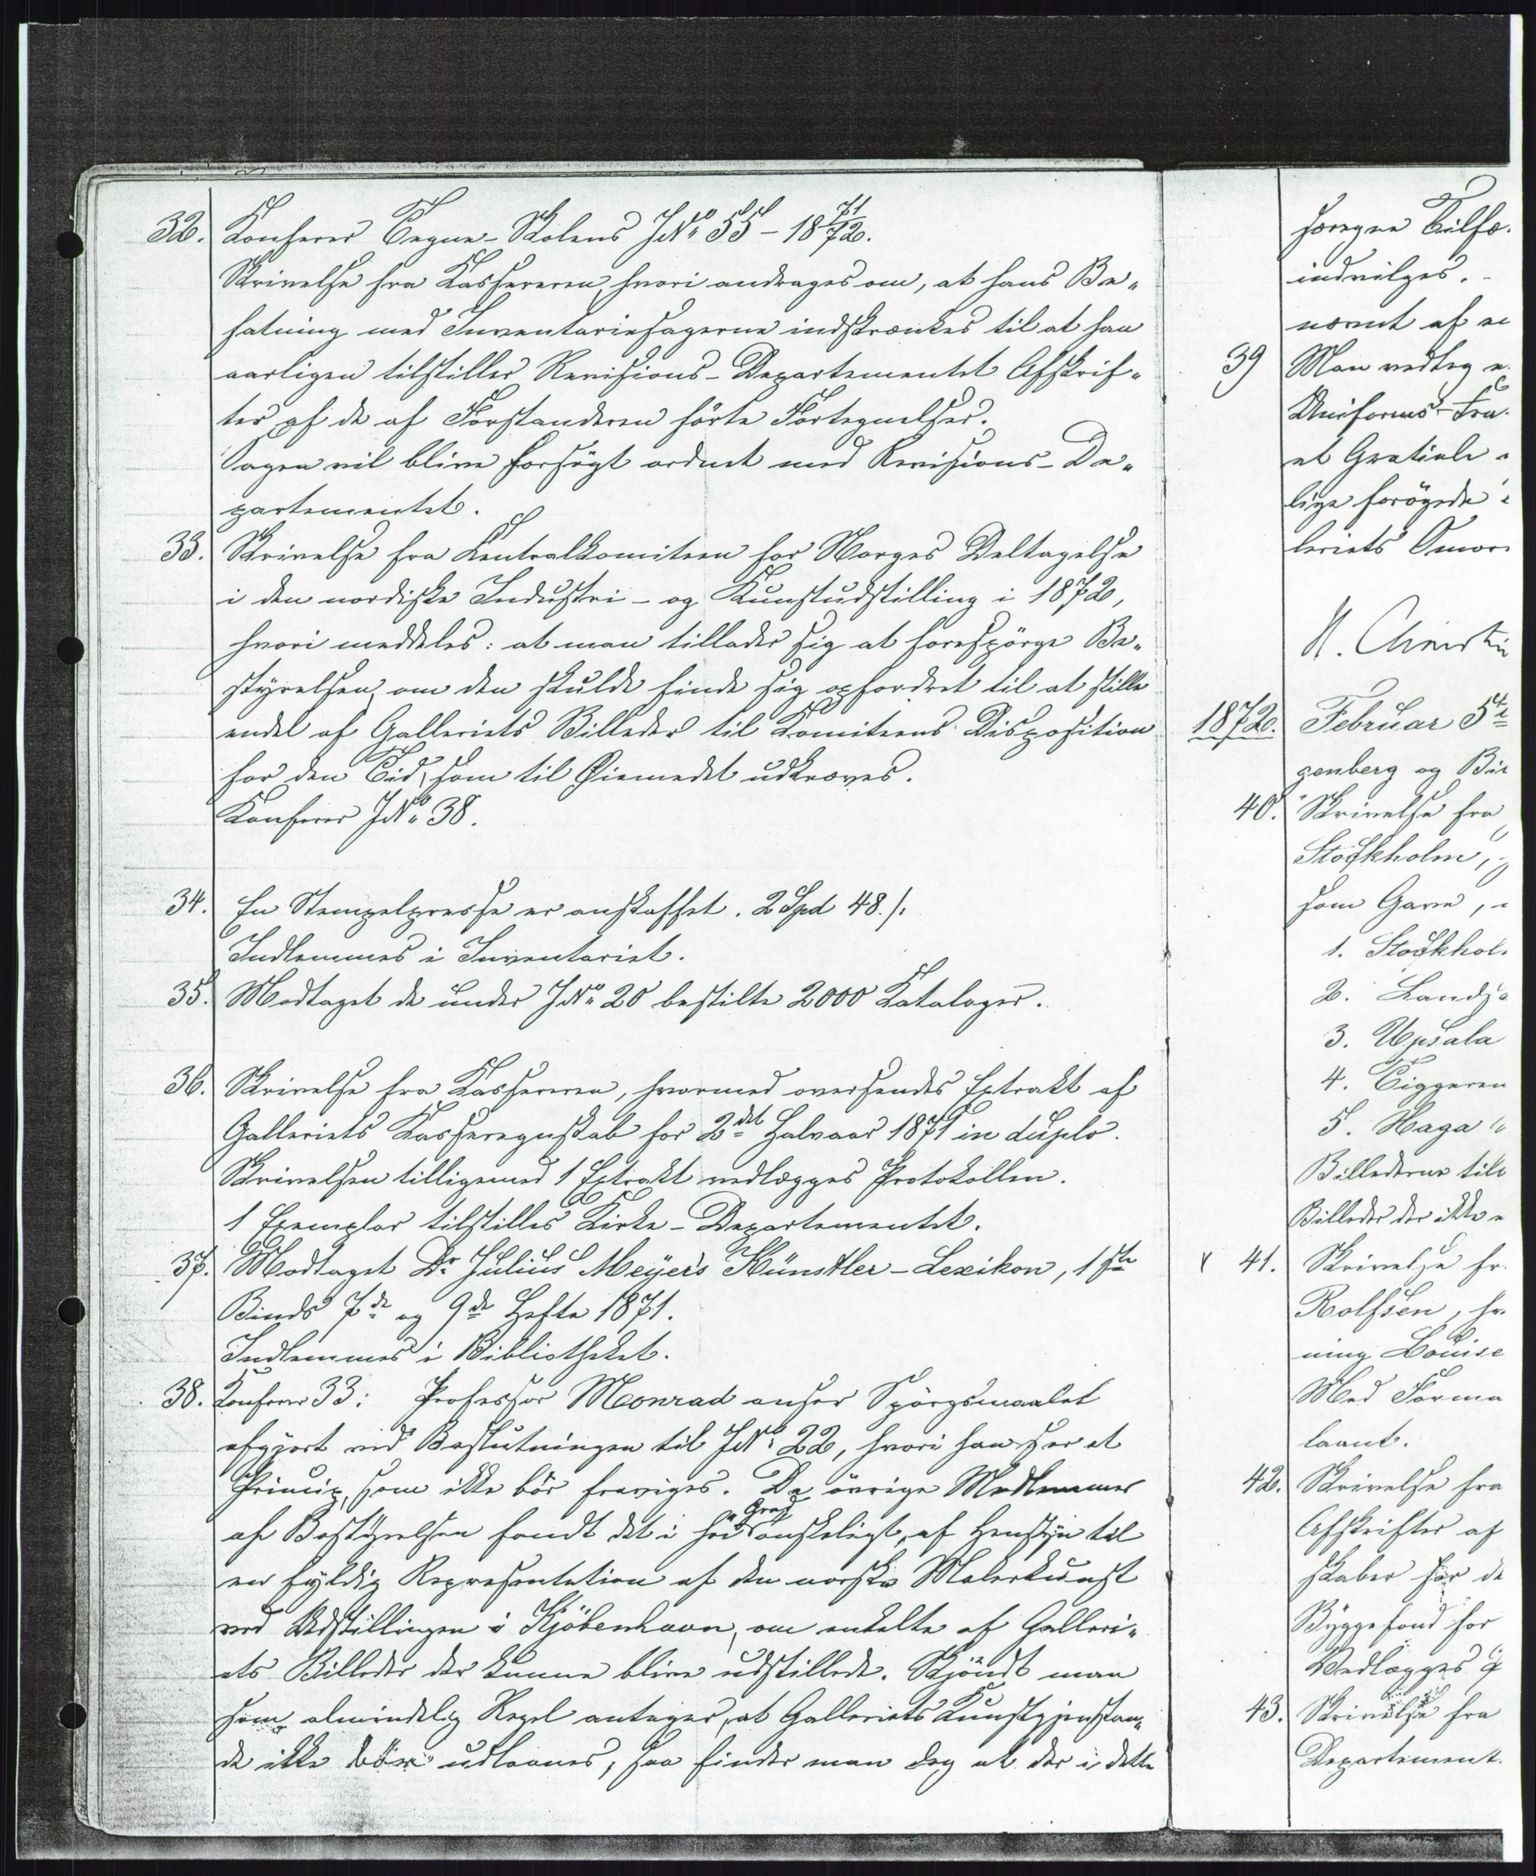 32. Konferer Tegne-Skolens JNo 55 - 1871/72.
Skrivelse fra Kassereren, hvori andrages om, at hans Be„
fatning med Inventariesagerne indskrænkes til at han
aarligen tilstiller Revisions-Departementet Afskrif„
ter af de af Forstanderen förte Fortegnelser.
Sagen vil blive forsögt ordnet med Revisions-De„
partementet.
33. Skrivelse fra Centralkomiteen for Norges Deltagelse
i den nordiske Industri- og Kunstudstilling i 1872,
hvori meddeles: at man tillader sig at forespörge Be„
styrelsen, om den skulde finde sig opfordret til at stille
endel af Galleriets Billeder til Komiteens Disposition
for den Tid, som til Øiemedet udkræves.
Konferer JNo 38.
34. En Stempelpresse er anskaffet. 2 Spd 48 /.
Indlemmes i Inventariet.
35. Modtaget de under JNo 20 bestilte 2000 Kataloger.
36. Skrivelse fra Kassereren, hvormed oversendes Extrakt af
Galleriets Kasseregnskab for 2det Halvaar 1871 in duplo.
Skrivelsen tilligemed 1 Extrakt vedlægges Protokollen.
1 Exemplar tilstilles Kirke-Departementet.
37. Modtaget Dr Julius Meyer's Künstler-Lexikon, 1ste
Binds 7de og 9de Hefte 1871.
Indlemmes i Bibliotheket.
38. Konferer 33: Professor Monrad anser Spörgsmaalet
afgjort ved Beslutningen til JNo 22, hvori han ser et
Princip, som ikke bör fraviges. De övrige Medlemmer
af Bestyrelsen fandt det i höi Grad önskeligt, af Hensyn til
en fyldig Repræsentation af den norske Malerkunst
ved Udstillingen i Kjöbenhavn, om enkelte af Galleri„
ets Billeder der kunne blive udstillede. Skjöndt man
som almindelig Regel antager, at Galleriets Kunstgjenstan„
de ikke bör udlaanes, saa finder man dog at der i dette
færegne Tilfæ
indvilges.
nævnt af
39 Man vedtog
Uniforms-Fra
et Gratiale
lige forögede
leriets Omor
H. Christi
1872. Februar 5te
genberg og Bir
40. Skrivelse fra
Stockholm,
som Gave,
1. Stockhol
2. Landj
3. Upsala
4. Tiggeren
5. Haga
Billederne till
Billeder der ikke
x 41. Skrivelse fr
Rolfsen, hv
ning Louise
Med Forma
laant.
42. Skrivelse fra
Afskrifter af
skaber for de
Byggefond for
Vedlægges P
43. Skrivelse fra
Departement